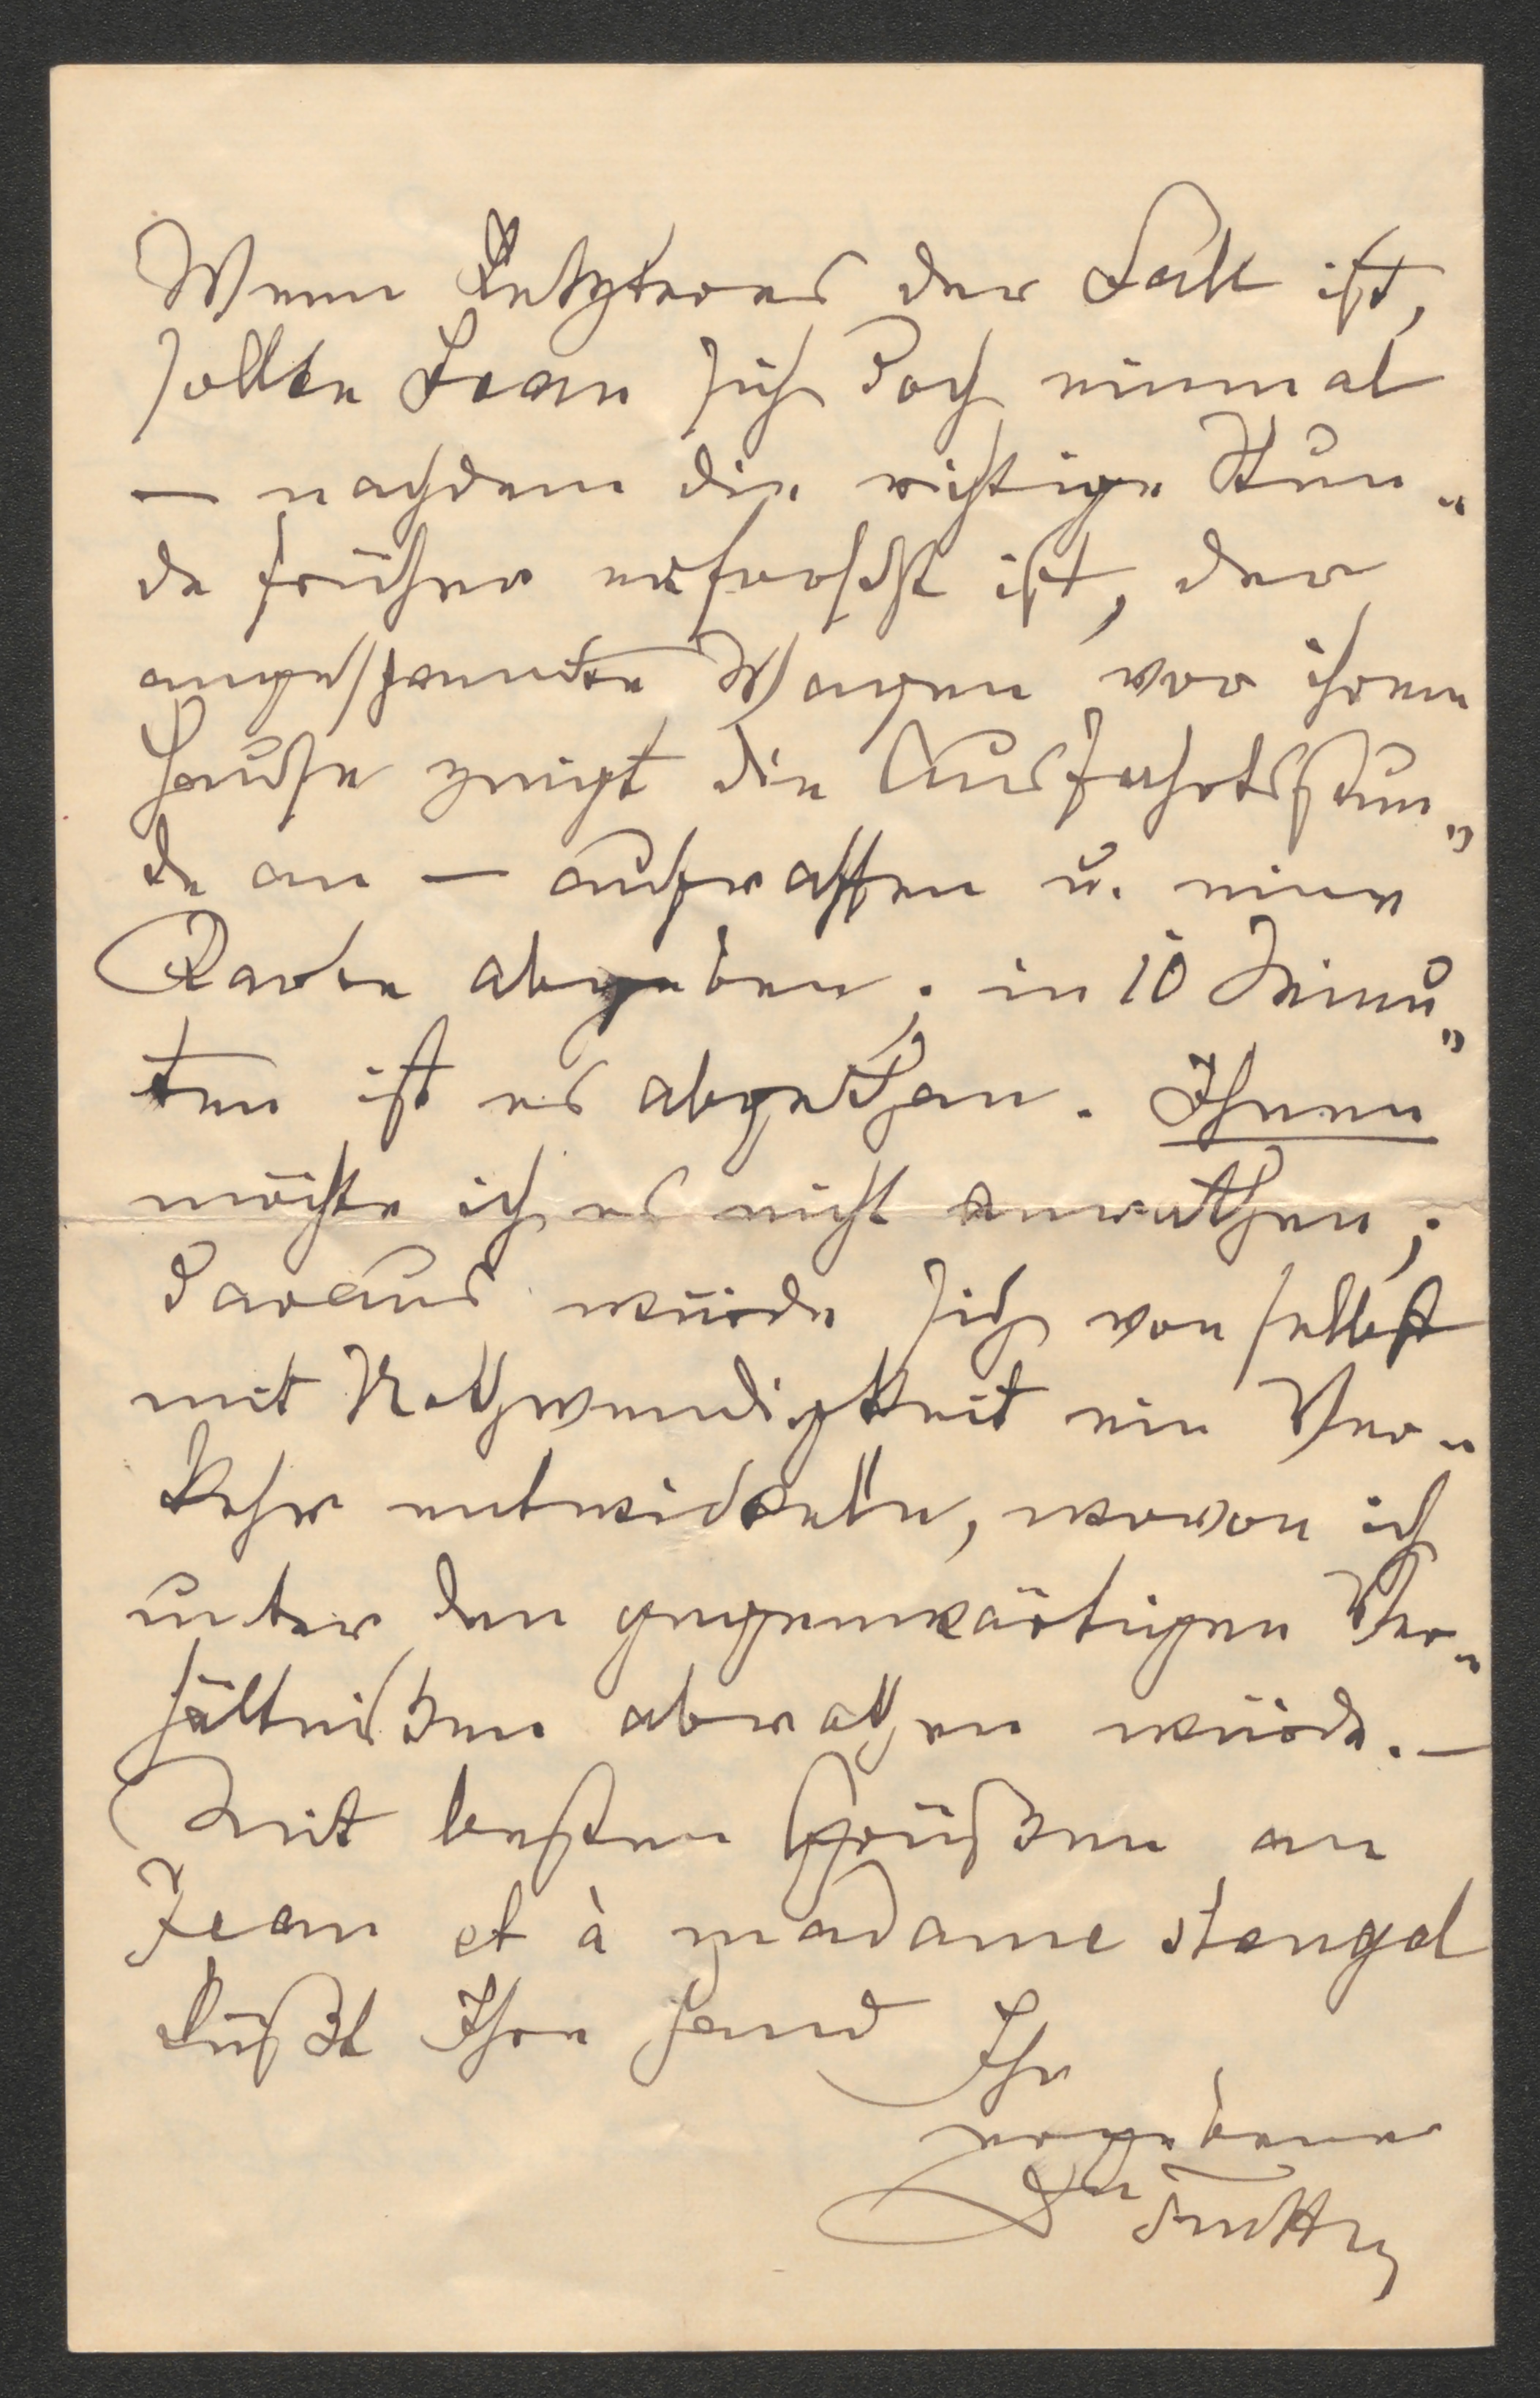 Wenn Letzteres der Fall ist,
sollte Jean sich doch einmal
— nachdem die richtige Stun„
de früher erforscht ist, der
angespannte Wagen vor ihrem
Hause zeigt die Ausfahrtsstun„
de an — aufraffen u. eine
Karte abgeben; in 10 Minu„
ten ist es abgethan. Ihnen
möchte ich es nicht anrathen;
daraus würde sich von selbst
mit Nothwendigkeit ein Ver„
kehr entwickeln, wovon ich
unter den gegenwärtigen Ver„
hältnißen abrathen würde. —
Mit besten Grüßen an
Jean et à madame Stengel
küßt Ihre Hand Ihr
ergebener
Dr